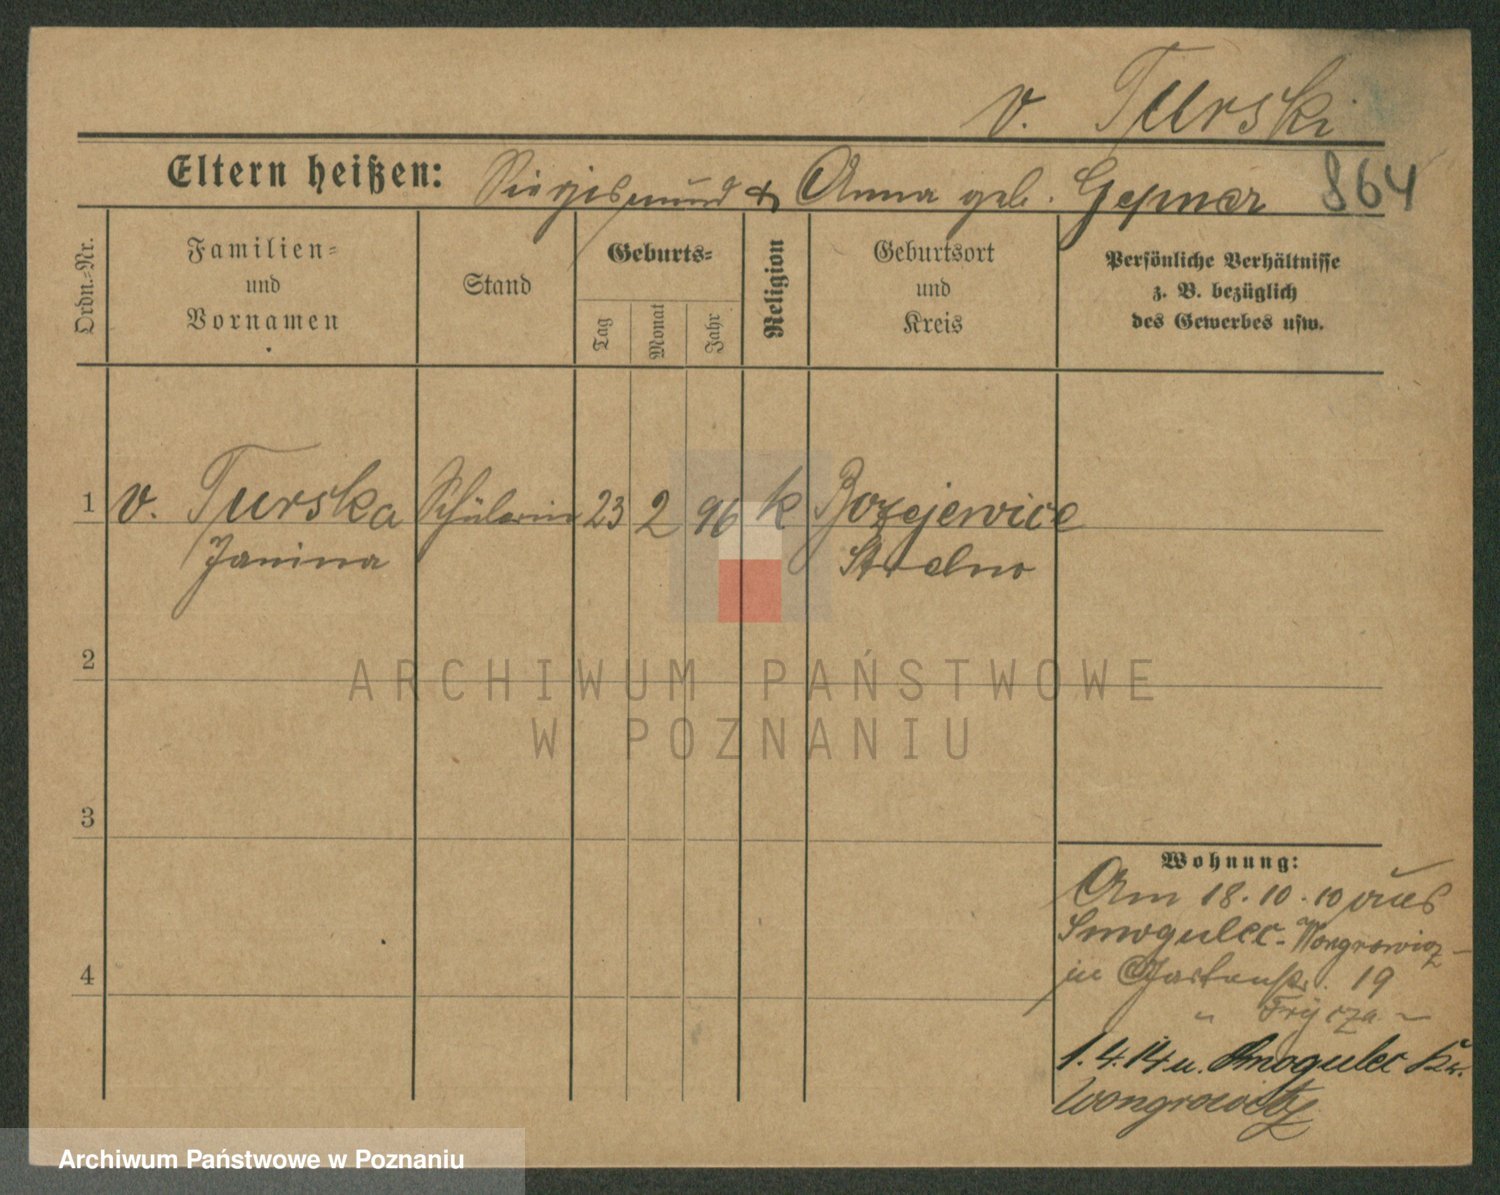 v. Turski
Eltern heißen: Siegismund & Anna geb. Gepner 864
Ordn.-Nr.
Familien-
und
Vornamen
Stand
Geburts-
Tag
Monat
Jahr
Religion
Geburtsort
und
Kreis
Persönliche Verhältnisse
z. B. bezüglich
des Gewerbes usw.
1 v. Turska Schülerin 23 2 96 k Bozejewice
Janina Strelno
2
ARCHIWUM PAŃSTWOWE
W POZNANIU
3
Wohnung:
Am 18.10.10 aus
Smogulec - Wongrowicz -
4
in Gartenstr. 19
" Frycza -
1.4.14 n. Smogulec Kr.
Wongrowitz
Archiwum Państwowe w Poznaniu